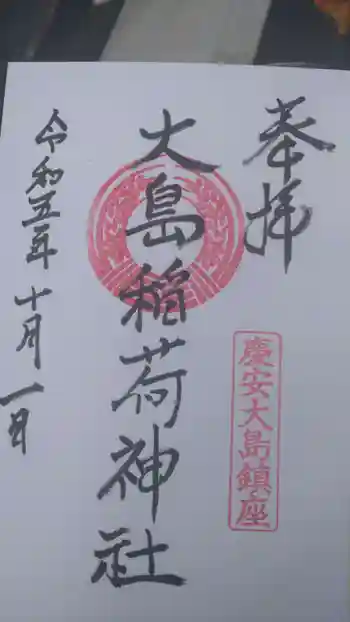 奉拝
慶安大島鎮座
大島稲荷神社
令和五年十月一日